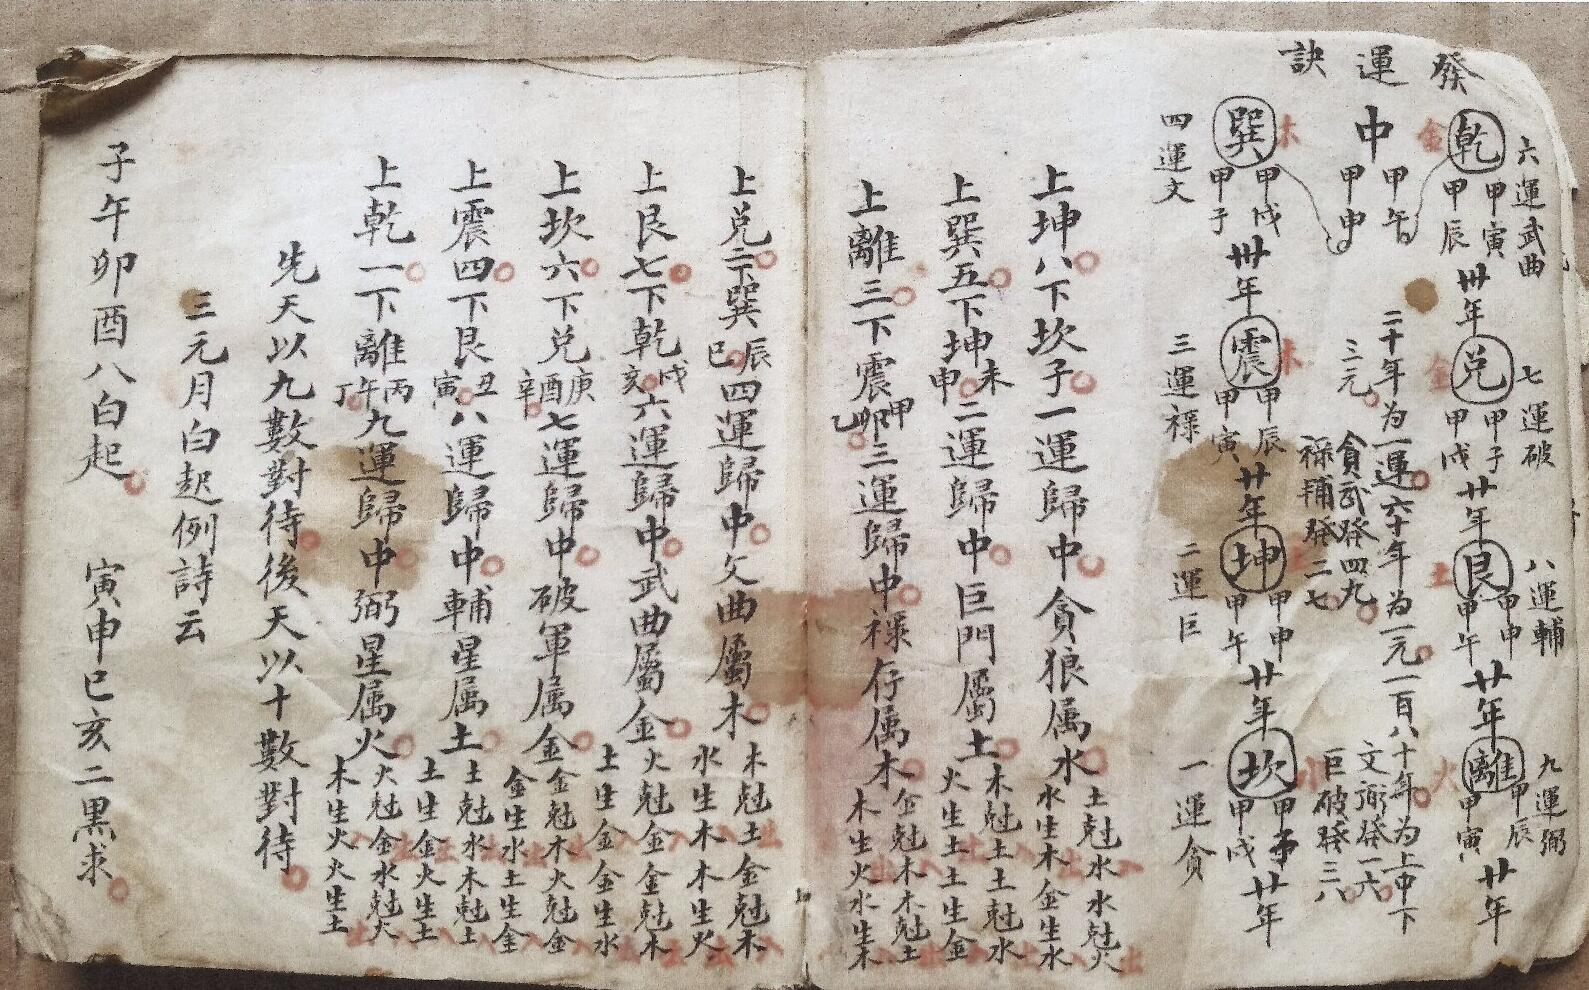 發運訣
六運武曲
乾 金 甲寅 甲辰 卅年
七運破
兌 金 甲子 甲戌 廿年
八運輔
艮 土 甲申 甲午 廿年
九運弼
離 火 甲辰 甲寅 廿年
中 甲午 甲申
二十年为一運六十年为一元一百八十年为上中下
三元
貪武發四九
祿輔發二七
文弼發一六
巨破發三八
巽 木 甲戌 甲子 卅年
四運文
震 木 甲辰 甲寅 廿年
三運祿
坤 土 甲申 甲午 廿年
二運巨
坎 水 甲子 甲戌 廿年
一運貪
上坤八下坎子一運歸中貪狼属水 土尅水水尅火 水生木金生水
上巽五下坤未申二運歸中巨門屬土 木尅土土尅水 火生土土生金
上離三下震甲卯乙三運歸中祿存属木 金尅木木尅土 木生火水生木
上兌二下巽辰巳四運歸中文曲屬木 木尅土金尅木 水生木木生火
上艮七下乾戌亥六運歸中武曲屬金 火尅金金尅木 土生金金生水
上坎六下兌庚酉辛七運歸中破軍属金 金尅木火尅金 金生水土生金
上震四下艮丑寅八運歸中輔星属土 土尅水木尅土 土生金火生土
上乾一下離丙午丁九運歸中弼星属火 火尅金水尅火 木生火火生土
先天以九數對待後天以十數對待
三元月白起例詩云
子午卯酉八白起 寅申巳亥二黑求